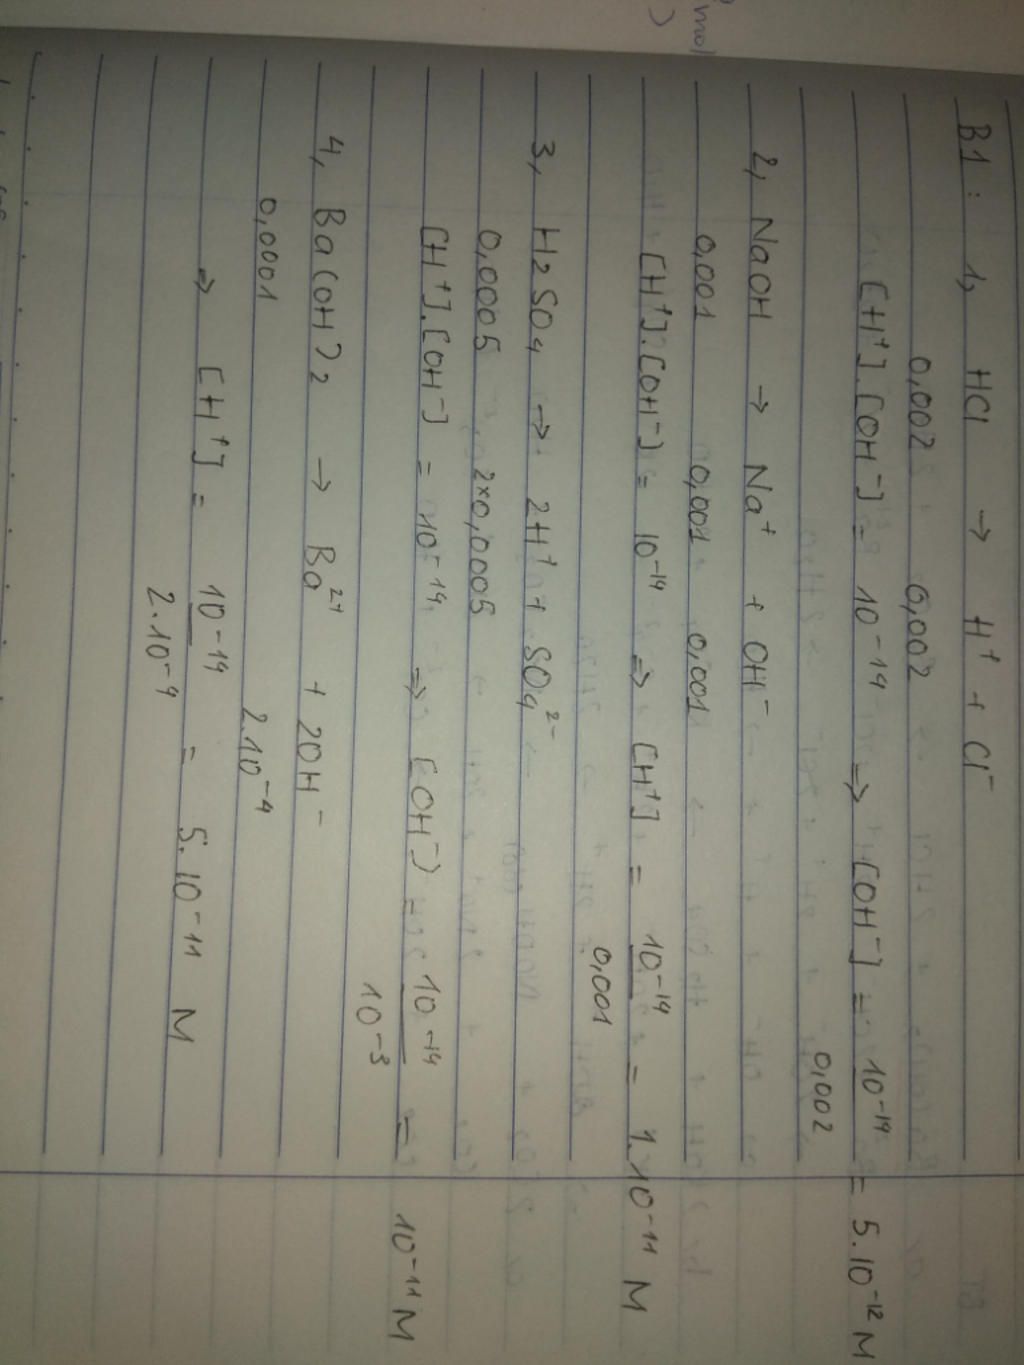 B1: 1, HCl → H⁺ + Cl⁻
0,002 0,002
[H⁺].[OH⁻] = 10⁻¹⁴ => [OH⁻] = 10⁻¹⁴ / 0,002 = 5.10⁻¹² M
2, NaOH → Na⁺ + OH⁻
0,001 0,001 0,001
[H⁺].[OH⁻] = 10⁻¹⁴ => [H⁺] = 10⁻¹⁴ / 0,001 = 1.10⁻¹¹ M
3, H2SO4 → 2H⁺ + SO4²⁻
0,0005 2x0,0005
[H⁺].[OH⁻] = 10⁻¹⁴ => [OH⁻] = 10⁻¹⁴ / 10⁻³ = 10⁻¹¹ M
4, Ba(OH)2 → Ba²⁺ + 2OH⁻
0,0001 2.10⁻⁴
=> [H⁺] = 10⁻¹⁴ / 2.10⁻⁴ = 5.10⁻¹¹ M
mol